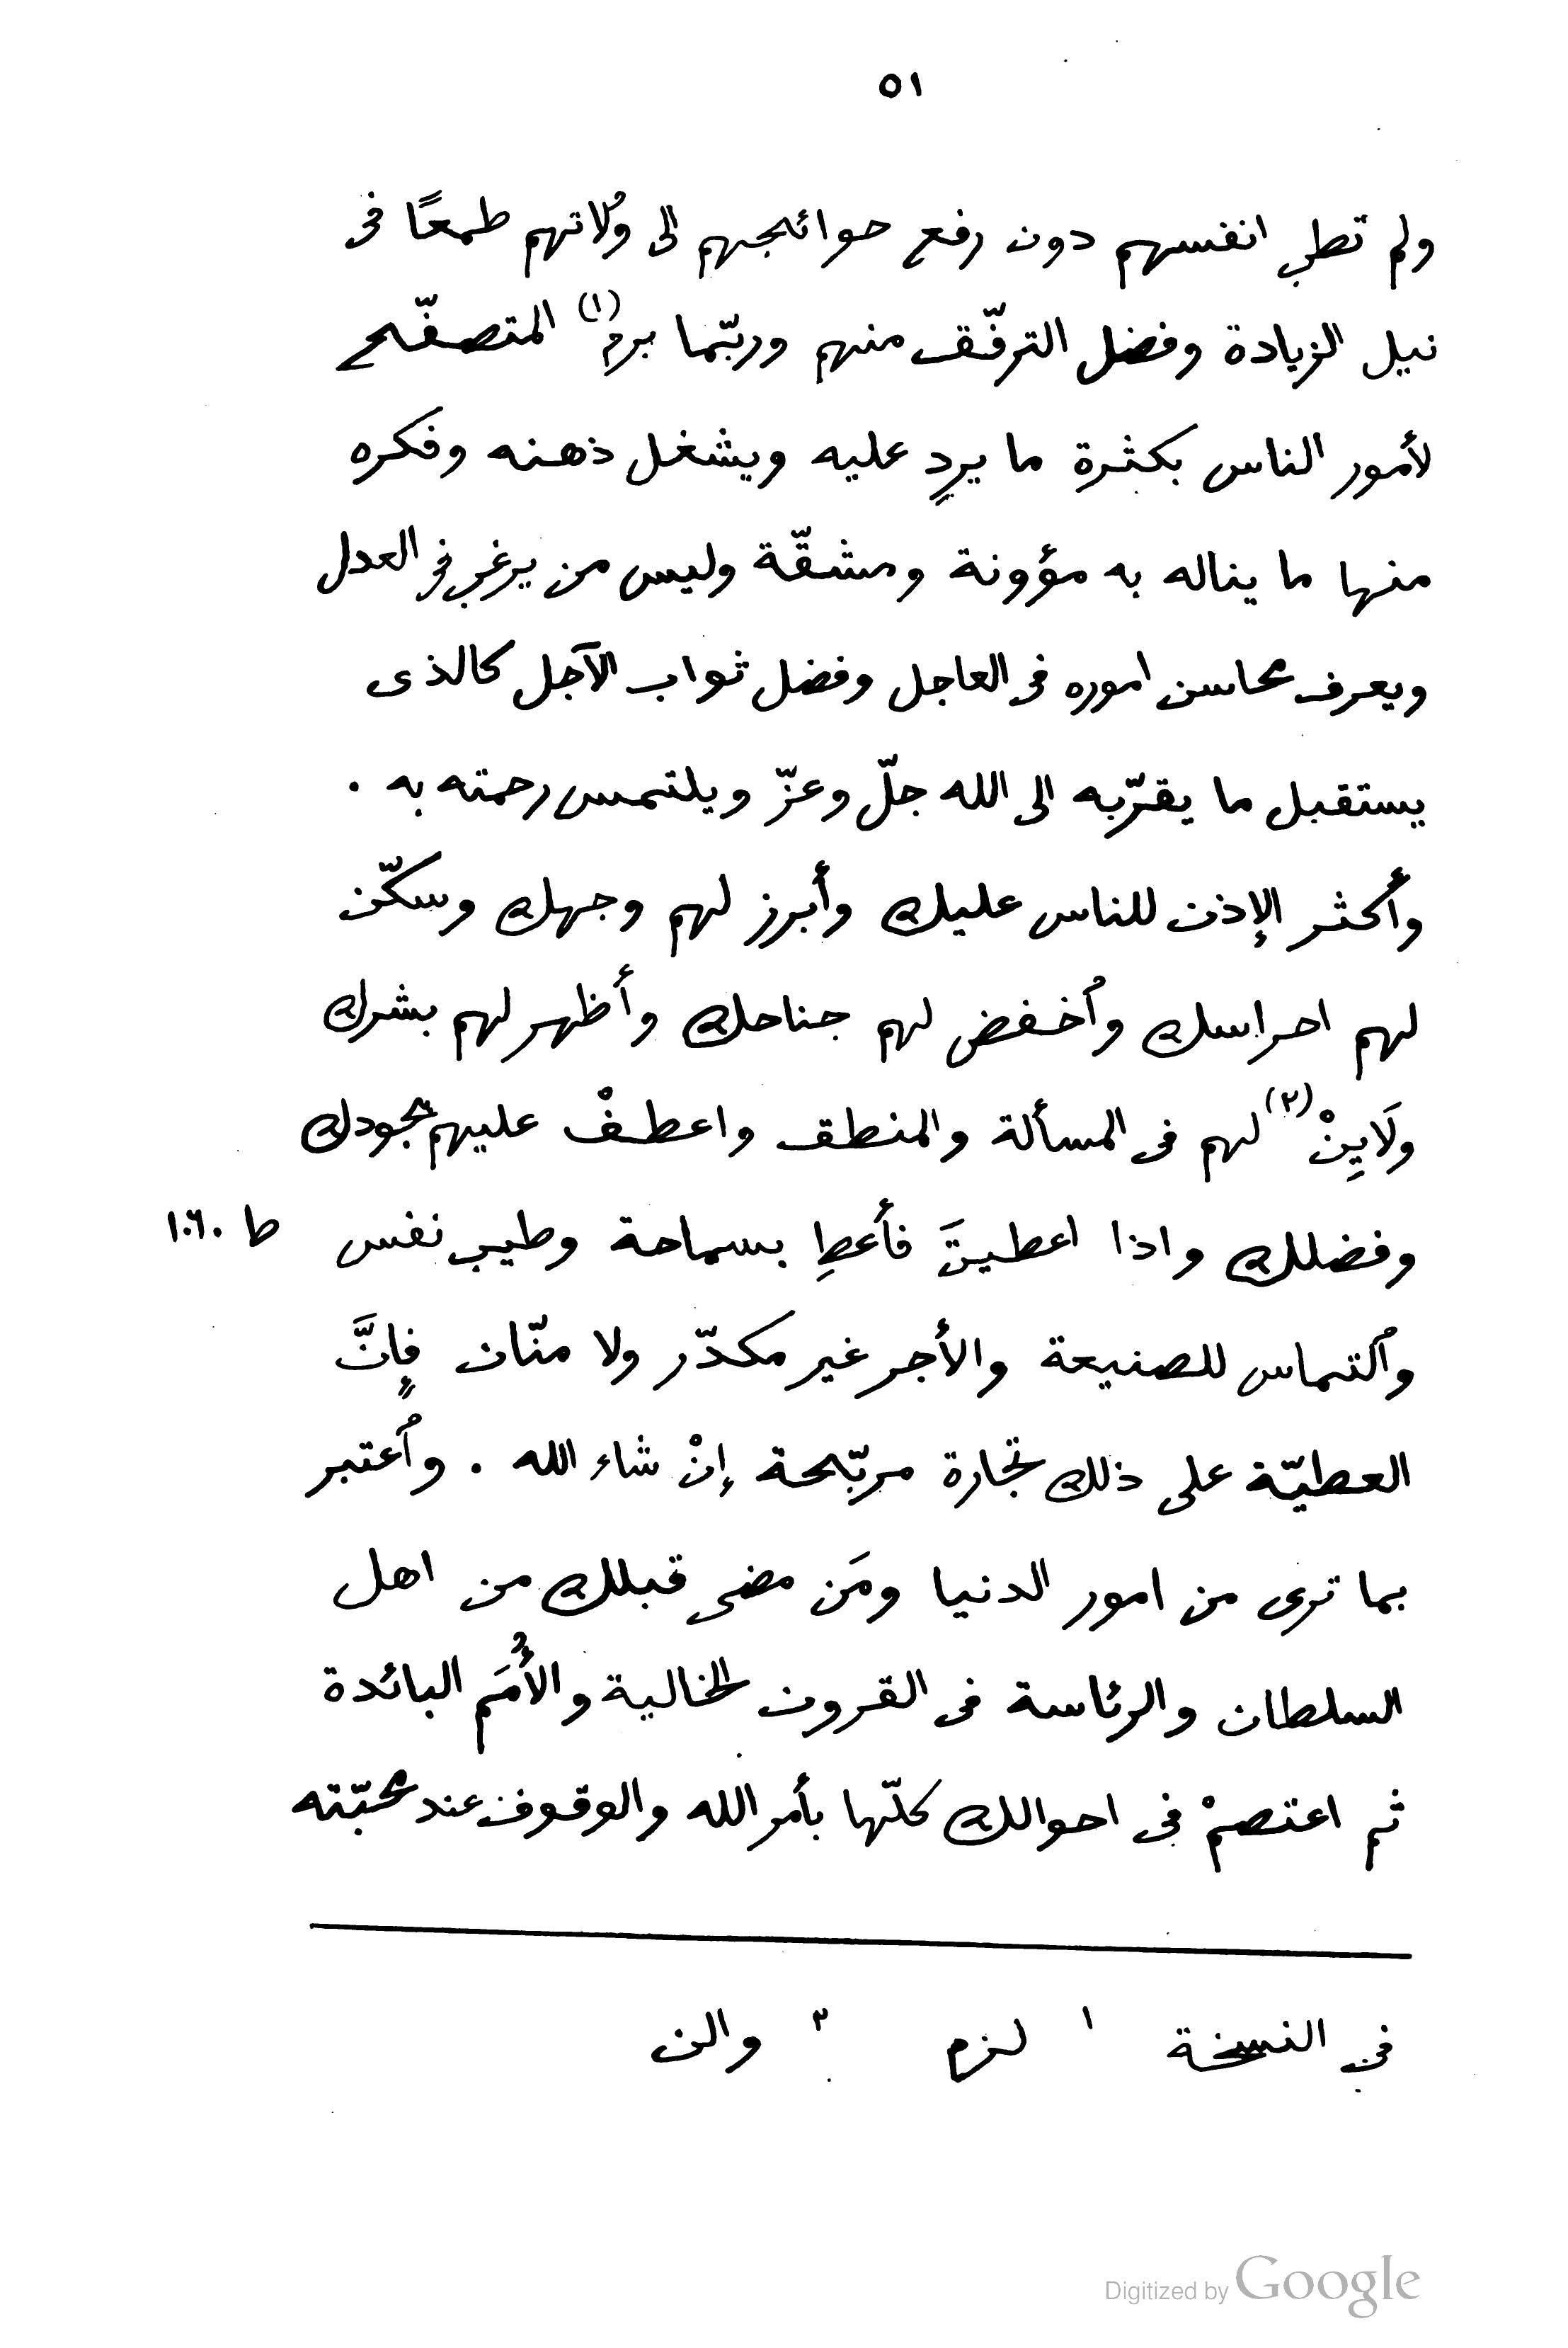 ٥١
ولم تطب انفسهم دون رفع حوائجهم الى وُلاتهم طمعًا فى
نيل الزيادة وفضل الترفّق منهم وربّما برم (١) المتصفّح
لأمور الناس بكثرة ما يرد عليه ويشغل ذهنه وفكره
منها ما يناله به مؤونة ومشقّة وليس من يرغب فى العدل
ويعرف محاسن اموره فى العاجل وفضل ثواب الآجل كالذى
يستقبل ما يقرّبه الى الله جلّ وعزّ ويلتمس رحمته به .
وأكثر الإذن للناس عليك وأبرز لهم وجهك وسكّن
لهم احراسك وٱخفض لهم جناحك وأظهر لهم بشرك
ولَايِنْ (٢) لهم فى المسألة والمنطق واعطفْ عليهم بجودك
وفضلك واذا اعطيتَ فأعطِ بسماحة وطيب نفس ط ١٠٦٠
وٱلتماس للصنيعة والأجر غير مكدّر ولا منّان فإنَّ
العطيّة على ذلك تجارة مربّحة إنْ شاء الله . وٱعتبر
بما ترى من امور الدنيا ومَن مضى قبلك من اهل
السلطان والرئاسة فى القرون الخالية والأُمَم البائدة
ثم اعتصمْ فى احوالك كلّها بأمر الله والوقوف عند محبّته
في النسخة ١ لزم ٢ والن
Digitized by Google